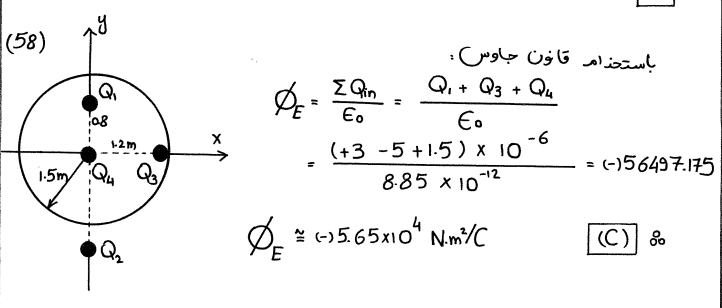 (58)
y
Q₁
0.8
1.2m
x
1.5m
Q₄
Q₃
Q₂
باستخدام قانون جاوس :
Ø_E = ΣQin / ϵ₀ = (Q₁ + Q₃ + Q₄) / ϵ₀
= (+3 -5 +1.5) × 10⁻⁶ / 8.85 × 10⁻¹² = (-)56497.175
Ø_E ≅ (-)5.65×10⁴ N.m²/C (C)